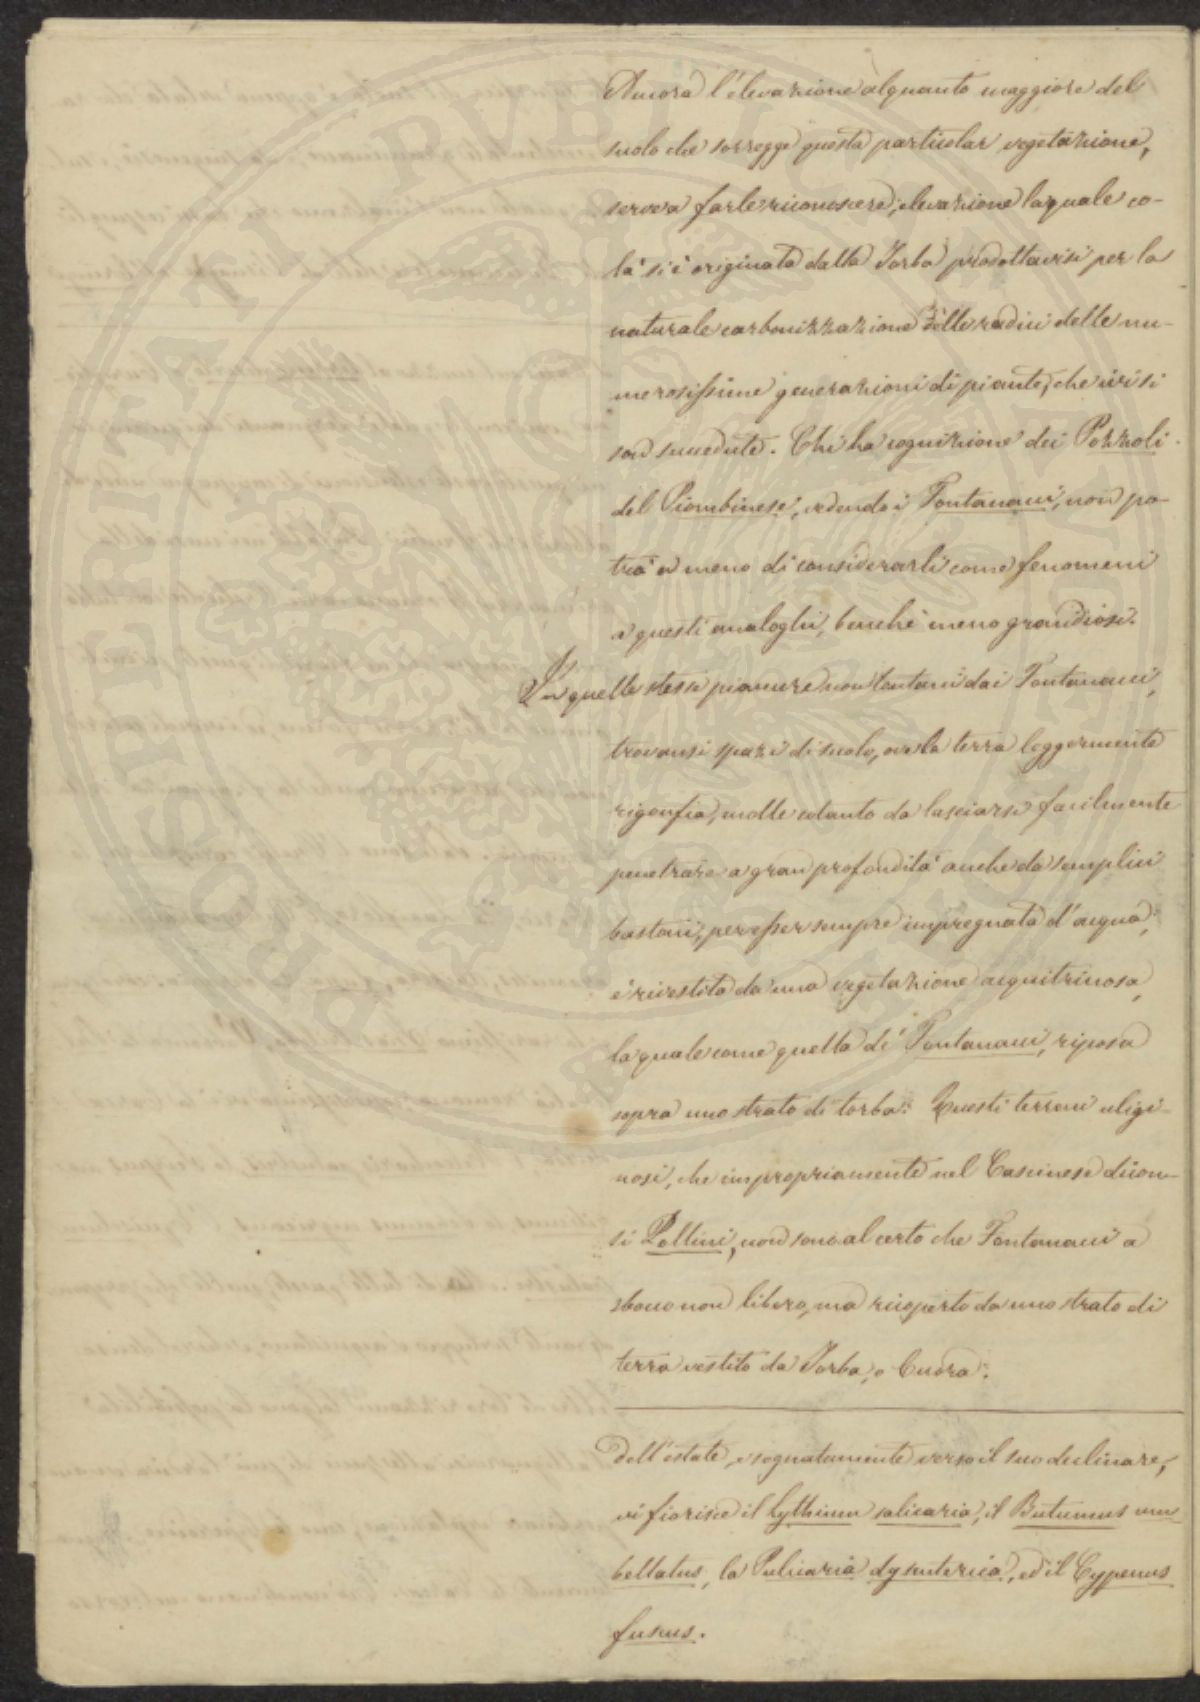 Ancora l'elevazione alquanto maggiore del
suolo che sorregge questa particolar vegetazione,
serve a farle riconoscere; elevazione la quale co-
là si è originata dalla Torba prodottavisi per la
naturale carbonizzazione delle radici delle nu-
merosissime generazioni di piante, che ivi si
son succedute. Chi ha cognizione dei Pozzali
del Piombinese, vedendo i Fontanacci, non po-
trà a meno di considerarli come fenomeni
a questi analoghi, benchè meno grandiosi.
In quelle stesse pianure non lontani dai Fontanacci,
trovansi spazi di suolo, ove la terra leggermente
rigonfia, molle cotanto da lasciarsi facilmente
penetrare a gran profondità anche da semplici
bastoni, per esser sempre impregnata d'acqua,
è rivestita da una vegetazione acquitrinosa,
la quale come quella di' Fontanacci, riposa
sopra uno strato di torba. Questi terreni uligi-
nosi, che impropriamente nel Cascinese dicon-
si Pollini, non sono al certo che Fontanacci a
sbocco non libero, ma ricoperto da uno strato di
terra vestito da Torba, o Cuora.
Dell'estate, e segnatamente verso il suo declinare,
vi fiorisce il Lythrum salicaria, il Butumus um-
bellatus, la Pulicaria dysenterica, ed il Cyperus
fuscus.
PROSPERITATI PVBLICAE